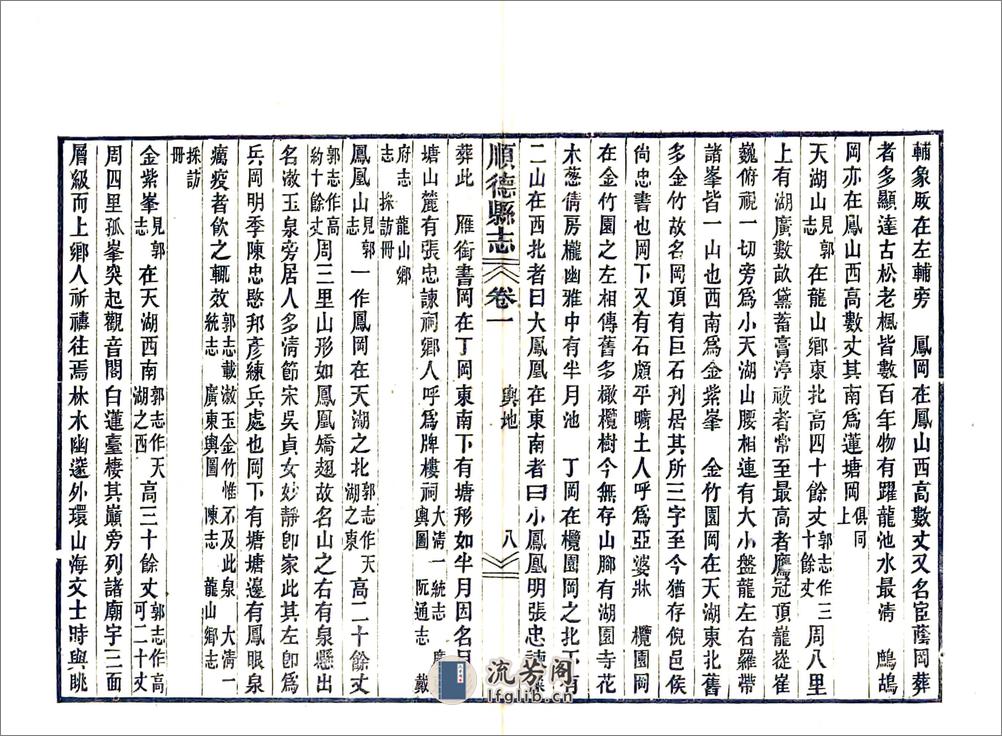 輔象厫在左輔旁　鳳岡在鳳山西高數丈又名宦蔭岡葬
者多顯達古松老楓皆數百年物有躍龍池水最清　鷓鴣
岡亦在鳳山西高數丈其南爲蓮塘岡俱同上
天湖山見郭志在龍山鄉東北高四十餘丈郭志作三十餘丈周八里
上有湖廣數畝黛蓄膏渟祓者常至最高者鷹冠頂巃嵸崔
巍俯視一切旁爲小天湖山腰相連有大小盤龍左右羅帶
諸峯皆一山也西南爲金紫峯　金竹園岡在天湖東北舊
多金竹故名岡頂有巨石列居其所三字至今猶存倪邑侯
尚忠書也岡下又有石頗平曠土人呼爲亞婆牀　欖園岡
在金竹園之左相傳舊多橄欖樹今無存山腳有湖園寺花
木葱倩房櫳幽雅中有半月池　丁岡在欖園岡之北下有
二山在西北者曰大鳳凰在東南者曰小鳳凰明張忠諫
順德縣志　卷一　輿地　八
葬此　雁銜書岡在丁岡東南下有塘形如半月因名月
塘山麓有張忠諫祠鄉人呼爲牌樓祠大清一統志　廣輿圖　阮通志　戴
府志　龍山鄉志　採訪冊
鳳凰山見郭志一作鳳岡在天湖之北郭志作天湖之東高二十餘丈
郭志作高約十餘丈周三里山形如鳳凰矯翅故名山之右有泉懸出
名漵玉泉旁居人多清節宋吳貞女妙靜卽家此其左卽爲
兵岡明季陳忠愍邦彥練兵處也岡下有塘塘邊有鳳眼泉
癘疫者飲之輒效郭志載漵玉金竹惟不及此泉　大清一統志　廣東輿圖　陳志　龍山鄉志
採訪冊
金紫峯見郭志在天湖西南郭志作天湖之西高三十餘丈郭志作高可二十丈
周四里孤峯突起觀音閣白蓮臺棲其巔旁列諸廟宇三面
層級而上鄉人祈禱往焉林木幽邃外環山海文士時與眺
流芳阁
lfglib.com.cn